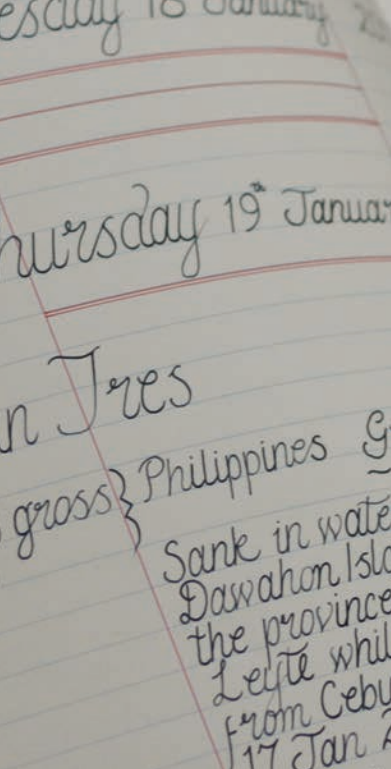 esday 18 January
hursday 19th Januar
n Tres
gross} Philippines G
Sank in wate
Dawahon Isla
the province
Leyte whil
from Cebu
17 Jan 2